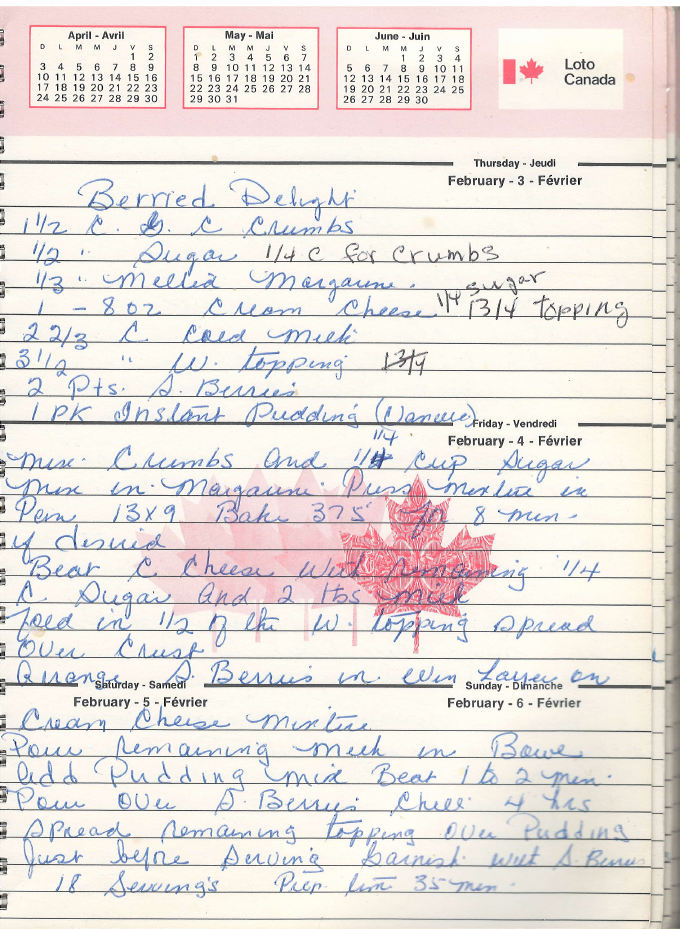 April - Avril
D L M M J V S
1 2
3 4 5 6 7 8 9
10 11 12 13 14 15 16
17 18 19 20 21 22 23
24 25 26 27 28 29 30
May - Mai
D L M M J V S
1 2 3 4 5 6 7
8 9 10 11 12 13 14
15 16 17 18 19 20 21
22 23 24 25 26 27 28
29 30 31
June - Juin
D L M M J V S
1 2 3 4
5 6 7 8 9 10 11
12 13 14 15 16 17 18
19 20 21 22 23 24 25
26 27 28 29 30
Loto
Canada
Thursday - Jeudi
February - 3 - Février
Berried Delight
1 1/2 C. G. C Crumbs
1/2 " Sugar 1/4 C for Crumbs
1/3 " Melted Margarine.
1/4 sugar
1 - 8 oz Cream Cheese 1 3/4 topping
2 2/3 C Cold Milk
3 1/2 " W. topping 1 3/4
2 Pts. S. Berries
1 PK Instant Pudding
Friday - Vendredi
February - 4 - Février
1/4
Mix Crumbs and Cup Sugar
Mix in Margarine. Press Mixture in
Pan 13x9 Bake 375° for 8 min.
if desired
Beat C. Cheese with remaining 1/4
C Sugar and 2 tbs milk
fold in 1/2 of the W. topping spread
Over Crust
Arrange S. Berries in even Layer on
Saturday - Samedi
February - 5 - Février
Sunday - Dimanche
February - 6 - Février
Cream Cheese Mixture
Pour remaining milk in Bowl
add Pudding mix Beat 1 to 2 min.
Pour over S. Berries Chill 4 hrs
Spread remaining topping over Pudding
Just before Serving Garnish with S. Berries
18 Serving's Prep. time 35 min.